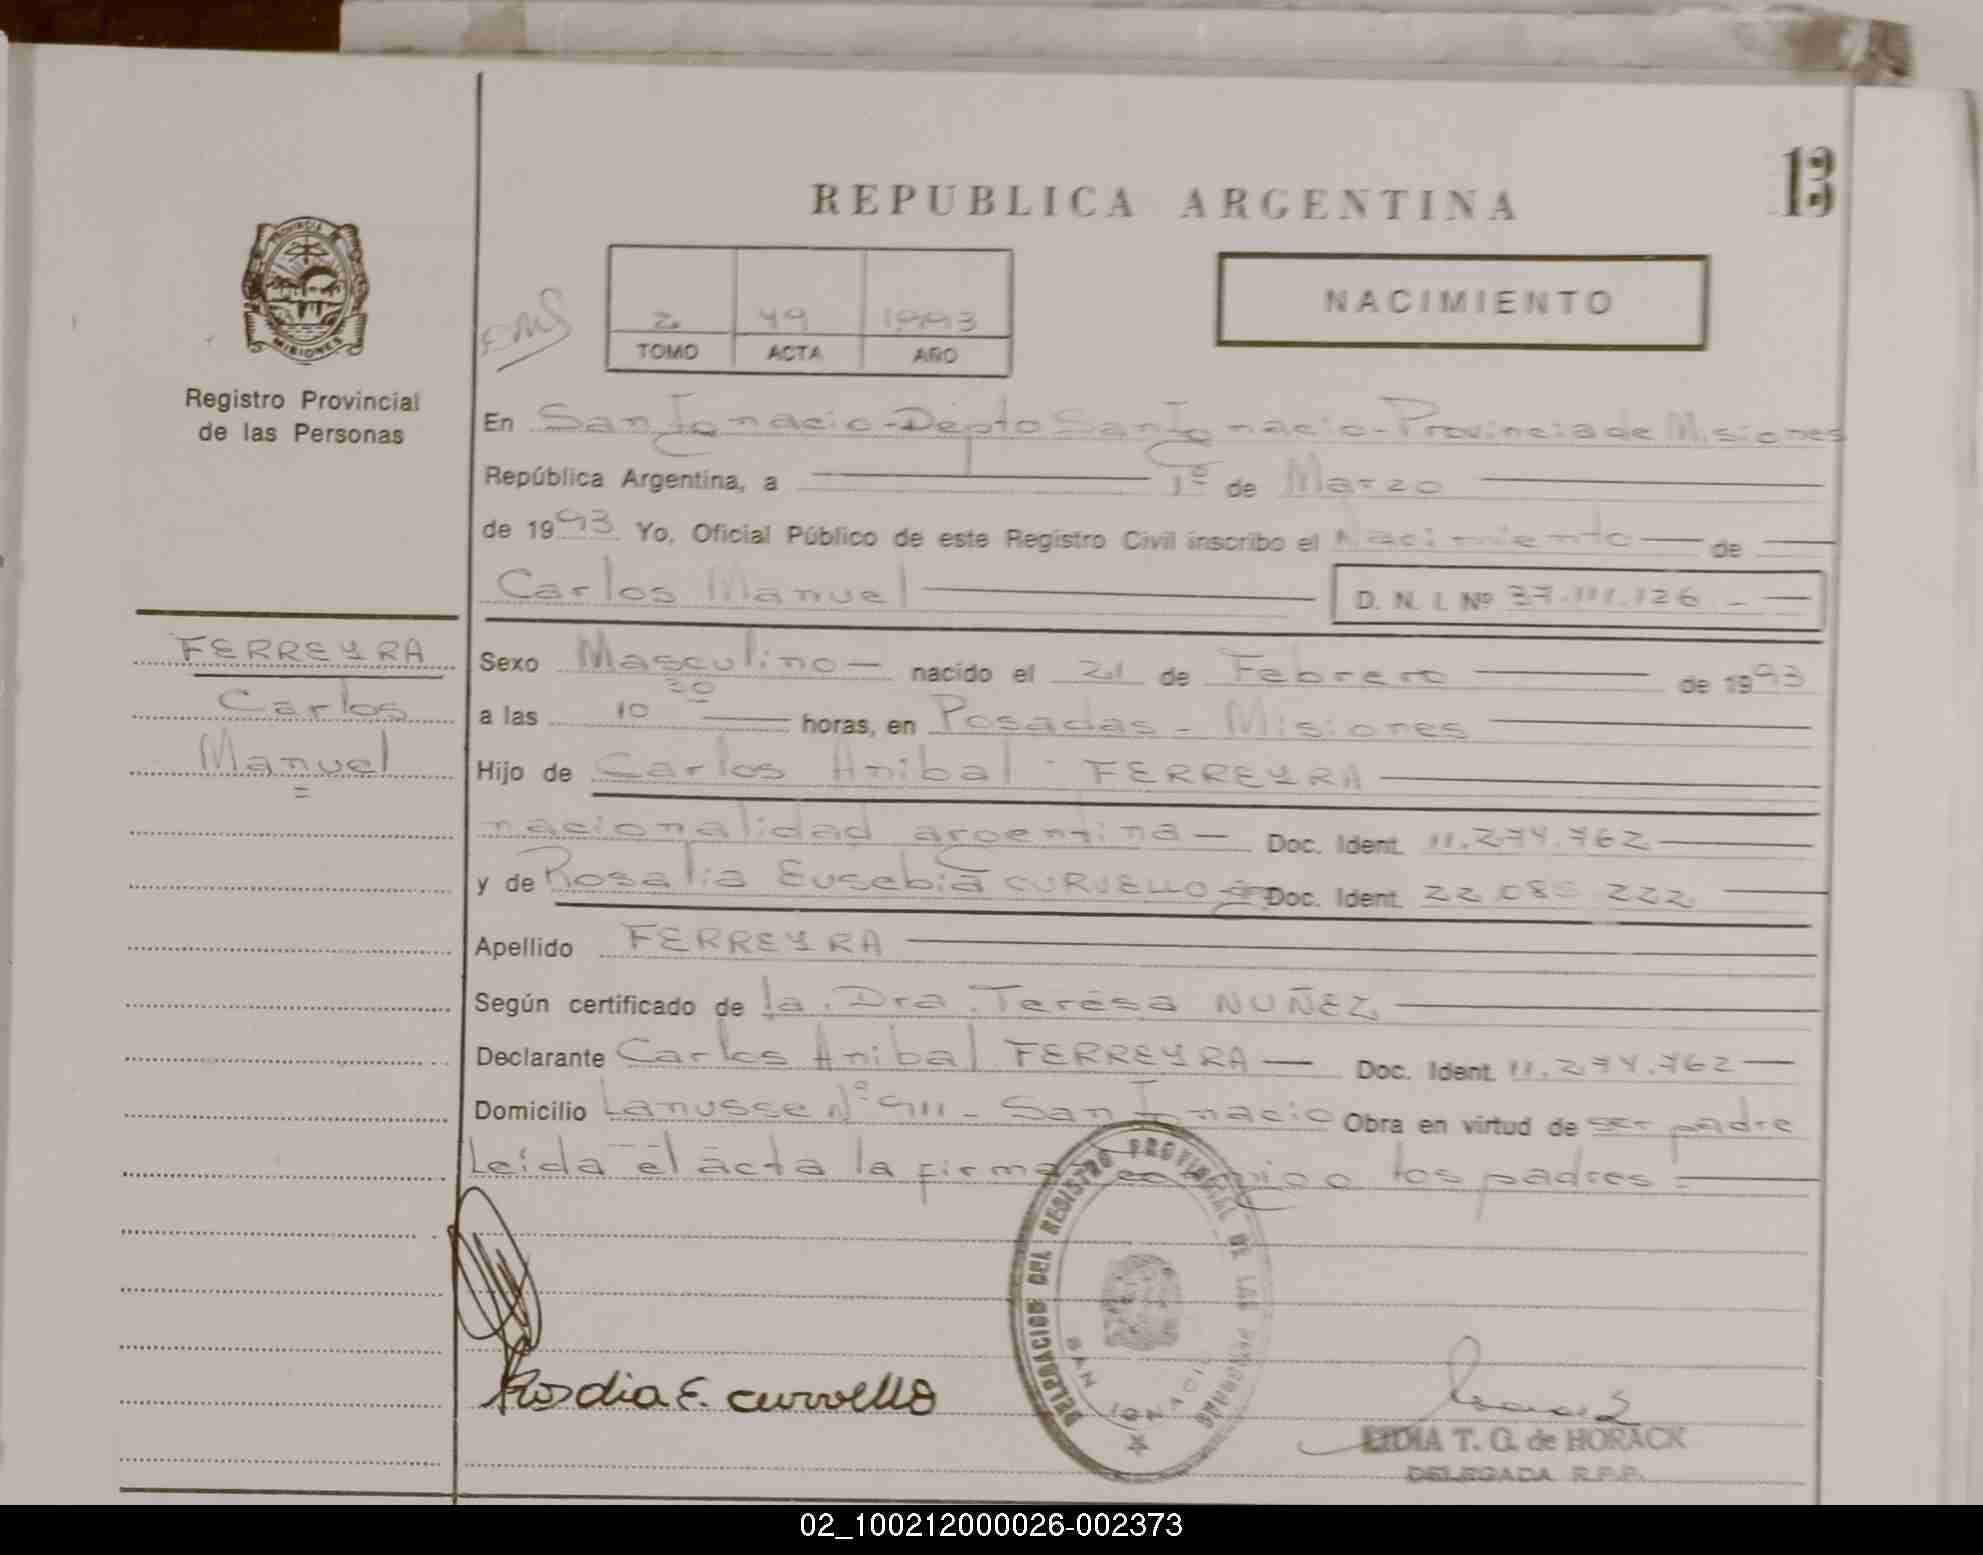 13
REPUBLICA ARGENTINA
PROVINCIA
MISIONES
Registro Provincial
de las Personas
2 49 1993
TOMO ACTA AÑO
NACIMIENTO
En San Ignacio - Depto San Ignacio - Provincia de Misiones
República Argentina, a 1º de Marzo
de 1993 Yo, Oficial Público de este Registro Civil inscribo el Nacimiento de
Carlos Manuel D. N. I. Nº 37.111.126 -
FERREYRA
Carlos
Manuel
=
Sexo Masculino nacido el 21 de Febrero de 1993
a las 10 30 horas, en Posadas - Misiones
Hijo de Carlos Anibal FERREYRA
nacionalidad argentina Doc. Ident. 11.274.762
y de Rosalia Eusebia CURVELLO Doc. Ident. 222
Apellido FERREYRA
Según certificado de la Dra. Teresa NUÑEZ
Declarante Carlos Anibal FERREYRA Doc. Ident. 11.274.762
Domicilio Lanusse Nº 911 - San Ignacio Obra en virtud de ser padre
Leida el acta la firman conmigo los padres
DELEGACION DEL REGISTRO PROVINCIAL DE LAS PERSONAS
SAN IGNACIO
Rosalia E. curvello
LIDIA T. G. de HORACK
DELEGADA R.P.P.
02_100212000026-002373